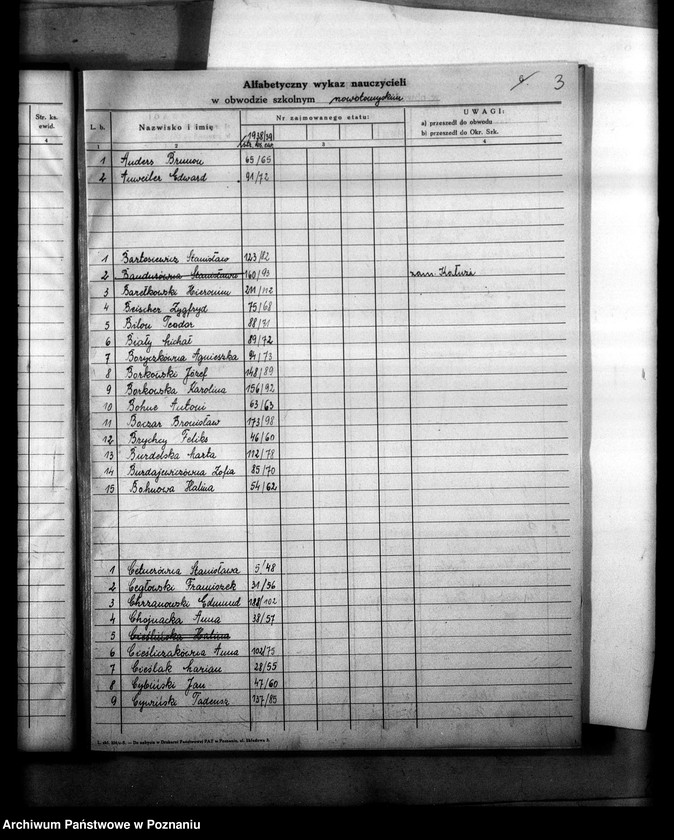 Str. ks.
ewid.
4
9 3
Alfabetyczny wykaz nauczycieli
w obwodzie szkolnym nowotomyskim
L. b.
Nazwisko i imię
Nr zajmowanego etatu:
1938/39
str. ks. ew.
UWAGI:
a) przeszedł do obwodu
b) przeszedł do Okr. Szk.
1 2 3 4
1 Anders Brunon 65/65
2 Anweiler Edward 91/72
1 Bartosiewicz Stanisław 123/82
2 Bandurówna Stanisława 160/93 zam. Kałuża
3 Baretkowski Hieronim 211/112
4 Beischer Zygfryd 75/68
5 Bilon Teodor 88/71
6 Biały Michał 89/72
7 Boryczkówna Agnieszka 94/73
8 Borkowski Józef 148/89
9 Borkowska Karolina 156/92
10 Bohne Antoni 63/63
11 Boczar Bronisław 173/98
12 Brychcy Feliks 46/60
13 Burdelska Marta 112/78
14 Burdajewiczówna Zofia 85/70
15 Bohnowa Halina 54/62
1 Cetnerówna Stanisława 5/48
2 Cegłowski Franciszek 31/56
3 Chrzanowski Edmund 188/102
4 Chojnacka Anna 38/57
5 Cieślińska Halina
6 Cieślczakówna Anna 102/75
7 Cieślak Marian 28/55
8 Cybiński Jan 47/60
9 Cywiński Tadeusz 137/85
Do nabycia w Drukarni Państwowej PAT w Poznaniu, ul. Składowa 8.
Archiwum Państwowe w Poznaniu